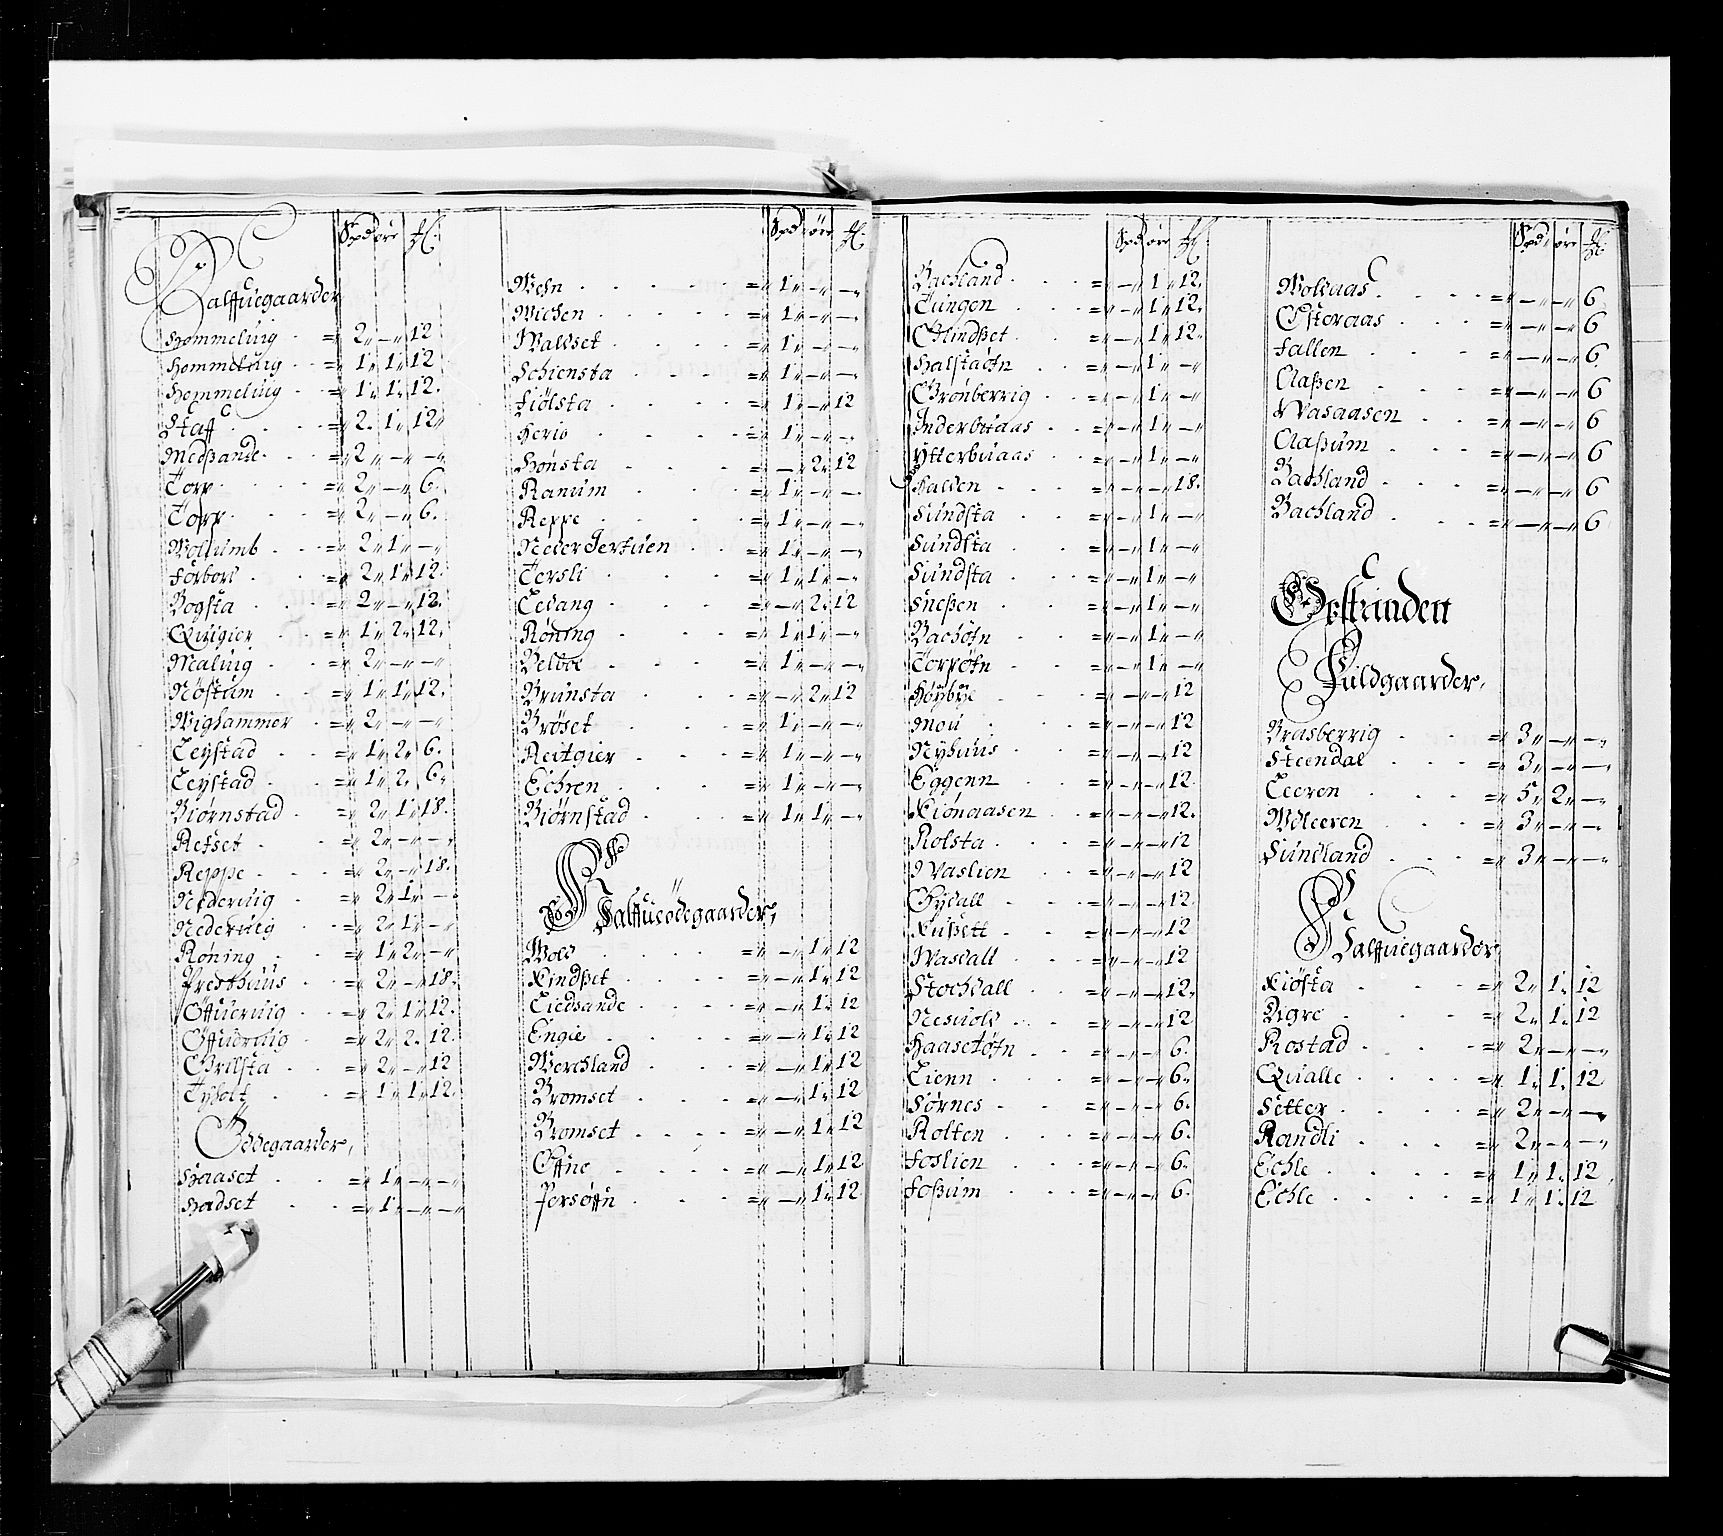 Spd öre ℔:
Halffuegaarder
Hommeluig = 2 „ — „ 12
Hommeluig = 1 „ 1 „ 12
Hommeluig = 1 „ 1 „ 12.
Staff = 2. 1 „ 12 „
Medßande = 2 „ — „ — „
Torp = 2 „ — „ 6.
Torp = 2 „ — „ 6.
= 2 „ 1 „ — „
Forbord = 2 „ 1 „ 12.
Bogsta = 2 „ — „ 12.
= 1 „ 2 „ 12.
Maluig = 2 „ — „ — „
Nöstum = 1 „ 1 „ 12.
Wighammer = 2 „ — „ — „
Leystad = 1 „ 2 „ 6.
Leystad = 1 „ 2. 6 „
Biörnstad = 2 „ 1 „ 18.
Refset = 2 „ — „ — „
Reppe = 2 „ — „ 18.
Nederuig = 2 „ 1 „ — „
Nederuig = 2 „ 1 „ — „
Röning = 1 „ 2 „ — „
Presthuus = 2 „ — „ 18.
Öffueruig = 2 „ 1 „ 12.
= 2 „ 2. 12.
Grilsta = 2 „ — „ 12
Tyholt = 1 „ 1 „ 12.
Ödegaarder,
Haaset = 1 „ — „ — „
Hadset = 1 „ — „ — „
Spd öre ℔
Wehn = 1 „ — „ — „
Wichen = 1 „ — „ — „
Waldset = 1 „ — „ — „
Schiensta = 1 „ — „ — „
Fiölsta = 1 „ — „ 12
= 1 „ — „ — „
Hönsta = — „ 2 „ 12
Ranum = 1 „ — „ — „
Reppe = 1 „ — „ — „
Neder Jertuen = 1 „ — „ — „
Tersli = 1 „ 1 „ — „
= — „ 2. 12
Röning = 1 „ 1 „ — „
Beldoe = 1 „ — „ — „
Brunsta = — „ 2 „ 12
Bröset = 1 „ — „ — „
Reitgier = 1 „ — „ — „
Echren = 1 „ — „ — „
Biörnstad = 1 „ 1 „ — „
Halffueödegaarder,
Wold = — „ 1 „ 12
Kindset = — „ 1 „ 12
Tiedsande = — „ 1 „ 12
Engie = — „ 1 „ 12
Werchland = — „ 1 „ 12
Bromset = — „ 1 „ 12
Bromset = — „ 1 „ 12
Offne = — „ 1 „ 12
= — „ 1 „ 12
Spd öre ℔:
Bachland = — „ 1 „ 12.
Tungen = — „ 1 „ 12.
Glindßet = — „ 1 „ 12.
Halstaötn = — „ 1 „ — „
Grönberrig = — „ 1 „ — „
Inderbuaas = — „ 1 „ — „
Ytterbuaas = — „ 1 „ — „
Halden = — „ — „ 18.
Sundsta = — „ 1 „ — „
Sundsta = — „ 1 „ — „
Sundsta = — „ 1 „ — „
Sneßen = — „ 1 „ — „
Bachötn = — „ 1 „ — „
Torpötn = — „ 1 „ — „
Höybye = — „ — „ 12
Mou = — „ — „ 12
Nyhuus = — „ — „ 12
Eggenn = — „ — „ 12
Kiönaasen = — „ — „ 12.
Rolsta = — „ — „ 12
Waslien = — „ — „ 12
Gydall = — „ — „ 12.
Kußett = — „ — „ 12
Wasdall = — „ — „ 12
Stochdall = — „ — „ 12.
Nesuold = — „ — „ 12
Haasetötn = — „ — „ 6.
Lienn = — „ — „ 6 „
Sörnes = — „ — „ 6.
Rolten = — „ — „ 6.
Foslien = — „ — „ 6.
Foßum = — „ — „ 6.
Spd öre ℔
Woldaas = — „ — „ 6
Österaas = — „ — „ 6
Fallen = — „ — „ 6
Claßen = — „ — „ 6
Wasaasen = — „ — „ 6
Claßum = — „ — „ 6
Bachland = — „ — „ 6
Bachland = — „ — „ 6
Fuldgaarder,
Brasberrig = 3 „ — „ — „
Steendal = 3 „ — „ — „
Leeren = 5 „ 2 „ — „
Wdleeren = 3 „ — „ — „
Sundland = 3 „ — „ — „
Halffuegaarder
Kiösta = 2 „ 1 „ 12
Agre = 2 „ 1 „ 12
Rostad = 2 „ — „ — „
Qualle = 1 „ 1 „ 12
Setter = 2 „ — „ — „
Randli = 2 „ — „ — „
Echle = 1 „ 1 „ 12
Echle = 1 „ 1 „ 12